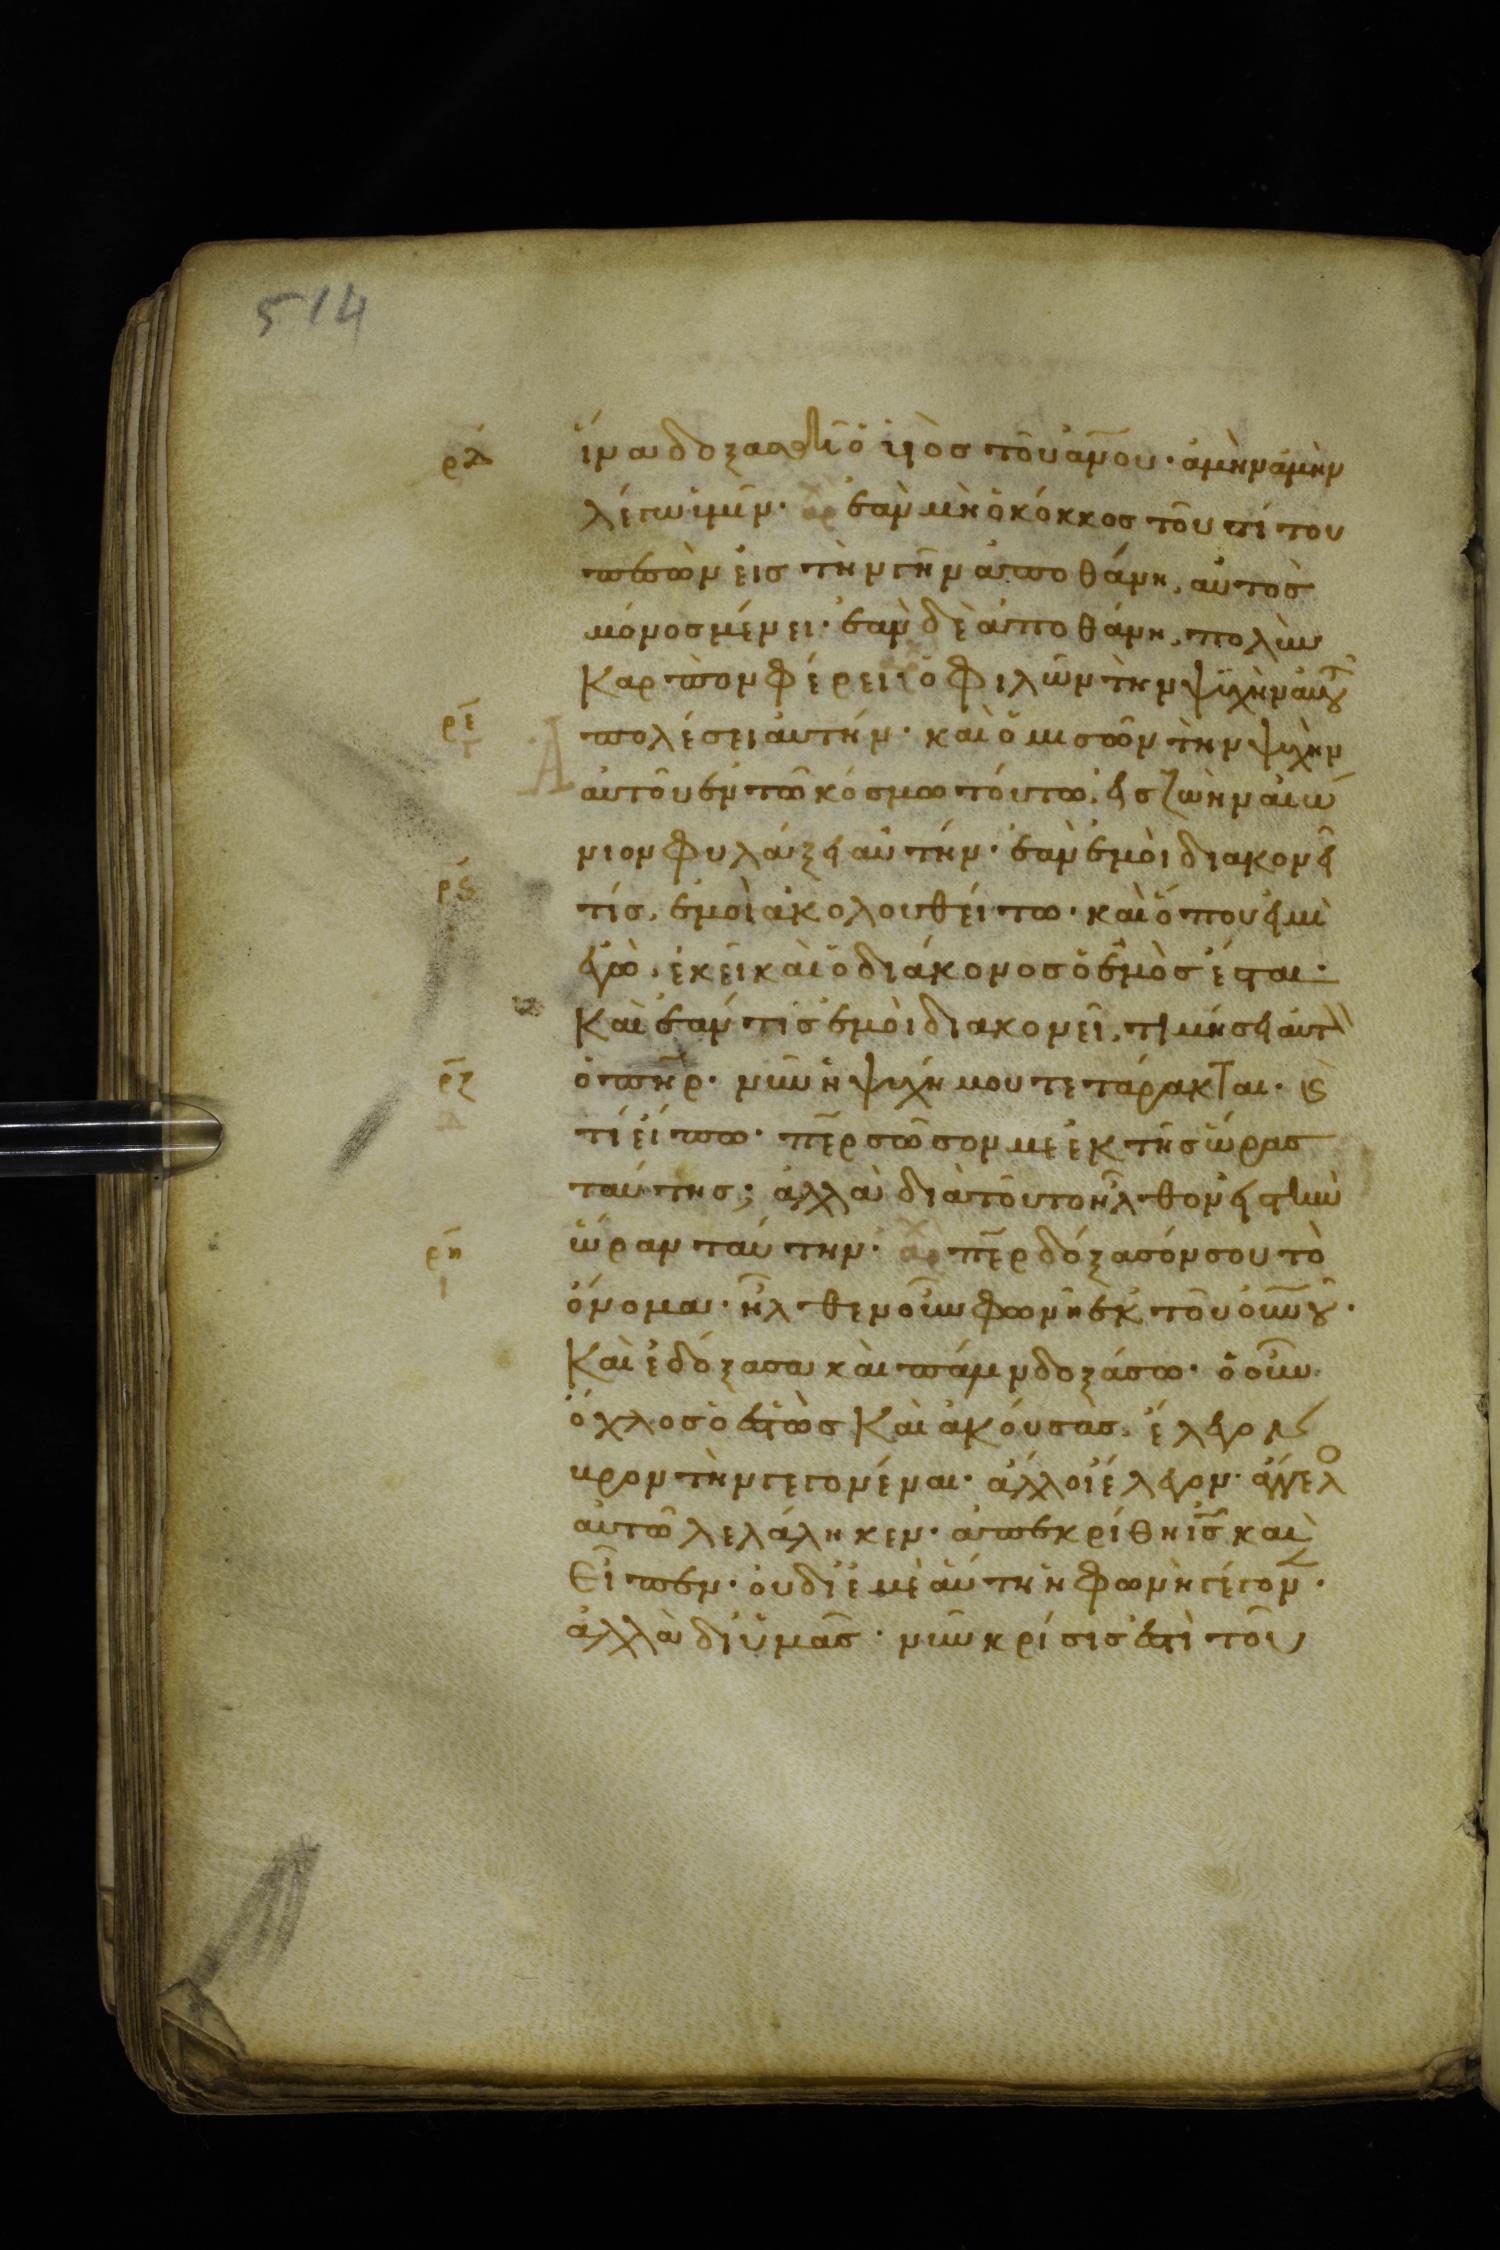 514
ρδ ἵνα δοξασθῆ ὁ υἱὸσ τοῦ ἀν̅ου· ἀμὴν ἀμὴν
λέγω ὑμῖν· ἐὰν μὴ ὁ κόκκοσ τοῦ σίτου
πεσὼν εἰσ τὴν γῆν ἀποθάνη, αὐτὸσ
μόνοσ μένει· ἐὰν δὲ ἀποθάνη, πολὺν
καρπὸν φέρει· ὁ φιλῶν τὴν ψυχὴν αὐτοῦ
ρε ἀπολέσει αὐτήν· καὶ ὁ μισῶν τὴν ψυχὴν
γ
αὐτοῦ ἐν τῶ κόσμω τούτω, εἰσ ζωὴν αἰώ
νιον φυλάξει αὐτήν· ἐὰν ἐμοὶ διακονεῖ
ρς τίσ, ἐμοὶ ἀκολουθείτω· καὶ ὅπου εἰμὶ
ἐγὼ, ἐκεῖ καὶ ὁ διάκονοσ ὁ ἐμὸσ ἔσται·
καὶ ἐάν τισ ἐμοὶ διακονεῖ, τιμήσει αὐτὸν
ρζ ὁ π̅η̅ρ· νῦν ἡ ψυχή μου τετάρακται· καὶ
δ
τί εἴπω· π̅ε̅ρ σῶσον με ἐκ τῆσ ὥρασ
ταύτησ; ἀλλὰ διὰ τοῦτο ἦλθον εἰσ τὴν
ρη ὥραν ταύτην· π̅ε̅ρ δόξασόν σου τὸ
ι
ὄνομα· ἦλθεν οὖν φωνὴ ἐκ τοῦ ο̅υ̅ν̅οῦ·
καὶ ἐδόξασα καὶ πάλιν δοξάσω· ὁ οὖν
ὄχλοσ ὁ ἑστὼσ καὶ ἀκούσασ, ἔλεγον
βρον τὴν γεγονέναι· ἄλλοι ἔλεγον· ἄγγελο
αὐτῶ λελάληκεν· ἀπεκρίθη ι̅σ̅ καὶ
εἶπεν· οὐ δι' ἐμὲ αὕτη ἡ φωνὴ γέγονεν·
ἀλλὰ δι' ὑμᾶσ· νῦν κρίσισ ἐστὶ τοῦ